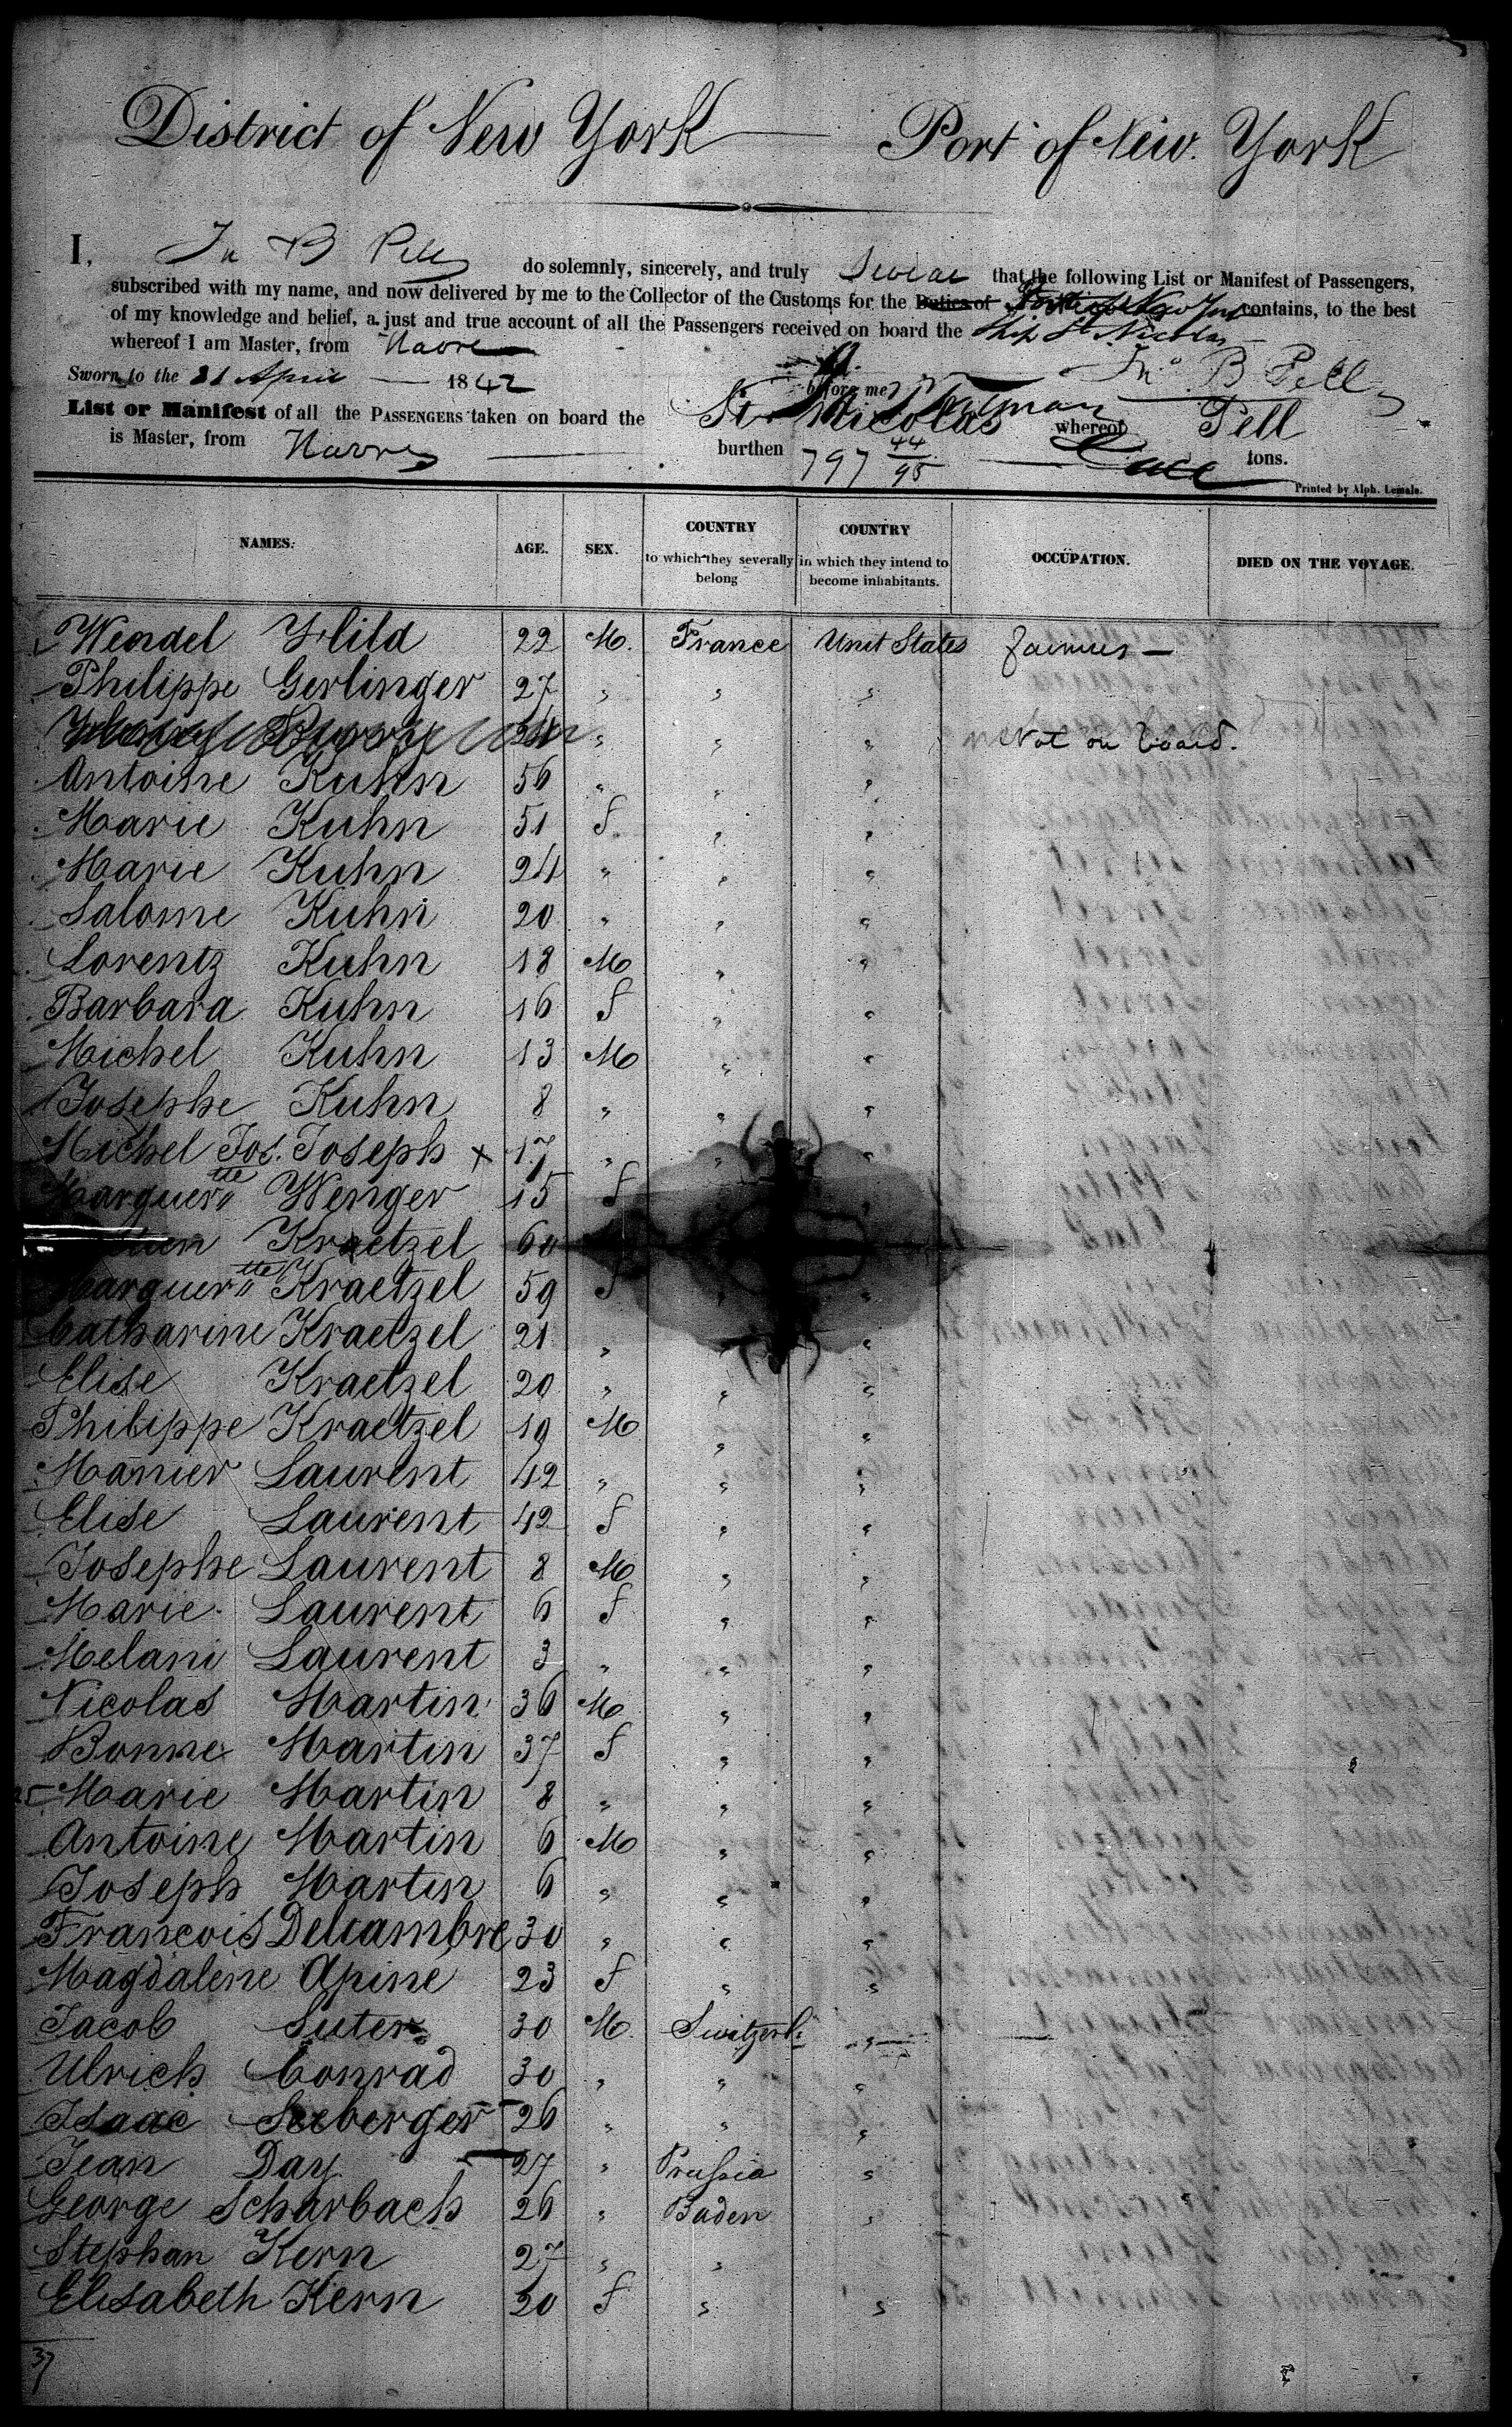 District of New York — Port of New York
I, Jn B Pell do solemnly, sincerely, and truly Swear that the following List or Manifest of Passengers,
subscribed with my name, and now delivered by me to the Collector of the Customs for the Duties of contains, to the best
of my knowledge and belief, a just and true account of all the Passengers received on board the Ship St Nicolas
whereof I am Master, from Havre
Jno B Pell
Sworn to the 21 April 1842 before me
List or Manifest of all the PASSENGERS taken on board the St Nicolas whereof Pell
is Master, from Havre burthen 797 44/95 tons.
Printed by Alph. Lemale.
NAMES. AGE. SEX. COUNTRY to which they severally belong COUNTRY in which they intend to become inhabitants. OCCUPATION. DIED ON THE VOYAGE.
Wendel Hild 22 M. France Unit States farmers —
Philippe Gerlinger 27 " " "
34 " " " Not on board.
Antoine Kuhn 56 " " "
Marie Kuhn 51 f " "
Marie Kuhn 24 " " "
Salome Kuhn 20 " " "
Lorentz Kuhn 18 M " "
Barbara Kuhn 16 f " "
Michel Kuhn 13 M " "
Josephe Kuhn 8 " " "
Michel Jos. Joseph x 17 " " "
Marguertte Wenger 15 f "
Kraetzel 60
Marguertte Kraetzel 59 f "
Catharine Kraetzel 21 " " "
Elise Kraetzel 20 " " "
Philippe Kraetzel 19 M " "
Manier Laurent 42 " " "
Elise Laurent 42 f " "
Josephe Laurent 8 M " "
Marie Laurent 6 f " "
Melani Laurent 3 " " "
Nicolas Martin 36 M " "
Bonne Martin 37 f " "
Marie Martin 8 " " "
Antoine Martin 6 M " "
Joseph Martin 6 " " "
Francois Delcambre 30 " " "
Magdalene Apine 23 f " "
Jacob Suter 30 M. Switzerl. "
Ulrich Conrad 30 " " "
Isaac Seeberger 26 " " "
Jean Day 27 " Prussia "
George Scharbach 26 " Baden "
Stephan Kern 27 " "
Elisabeth Kern 20 f " "
37